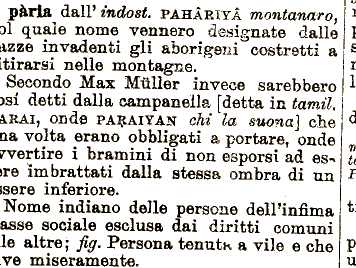 pària dall' indost. PAHÂRIYÂ montanaro,
ol quale nome vennero designate dalle
azze invadenti gli aborigeni costretti a
itirarsi nelle montagne.
Secondo Max Müller invece sarebbero
osí detti dalla campanella [detta in tamil.
ARAI, onde PAṚAIYAN chi la suona] che
na volta erano obbligati a portare, onde
vvertire i bramini di non esporsi ad es-
ere imbrattati dalla stessa ombra di un
ssere inferiore.
Nome indiano delle persone dell'infima
asse sociale esclusa dai diritti comuni
lle altre; fig. Persona tenuta a vile e che
ive miseramente.